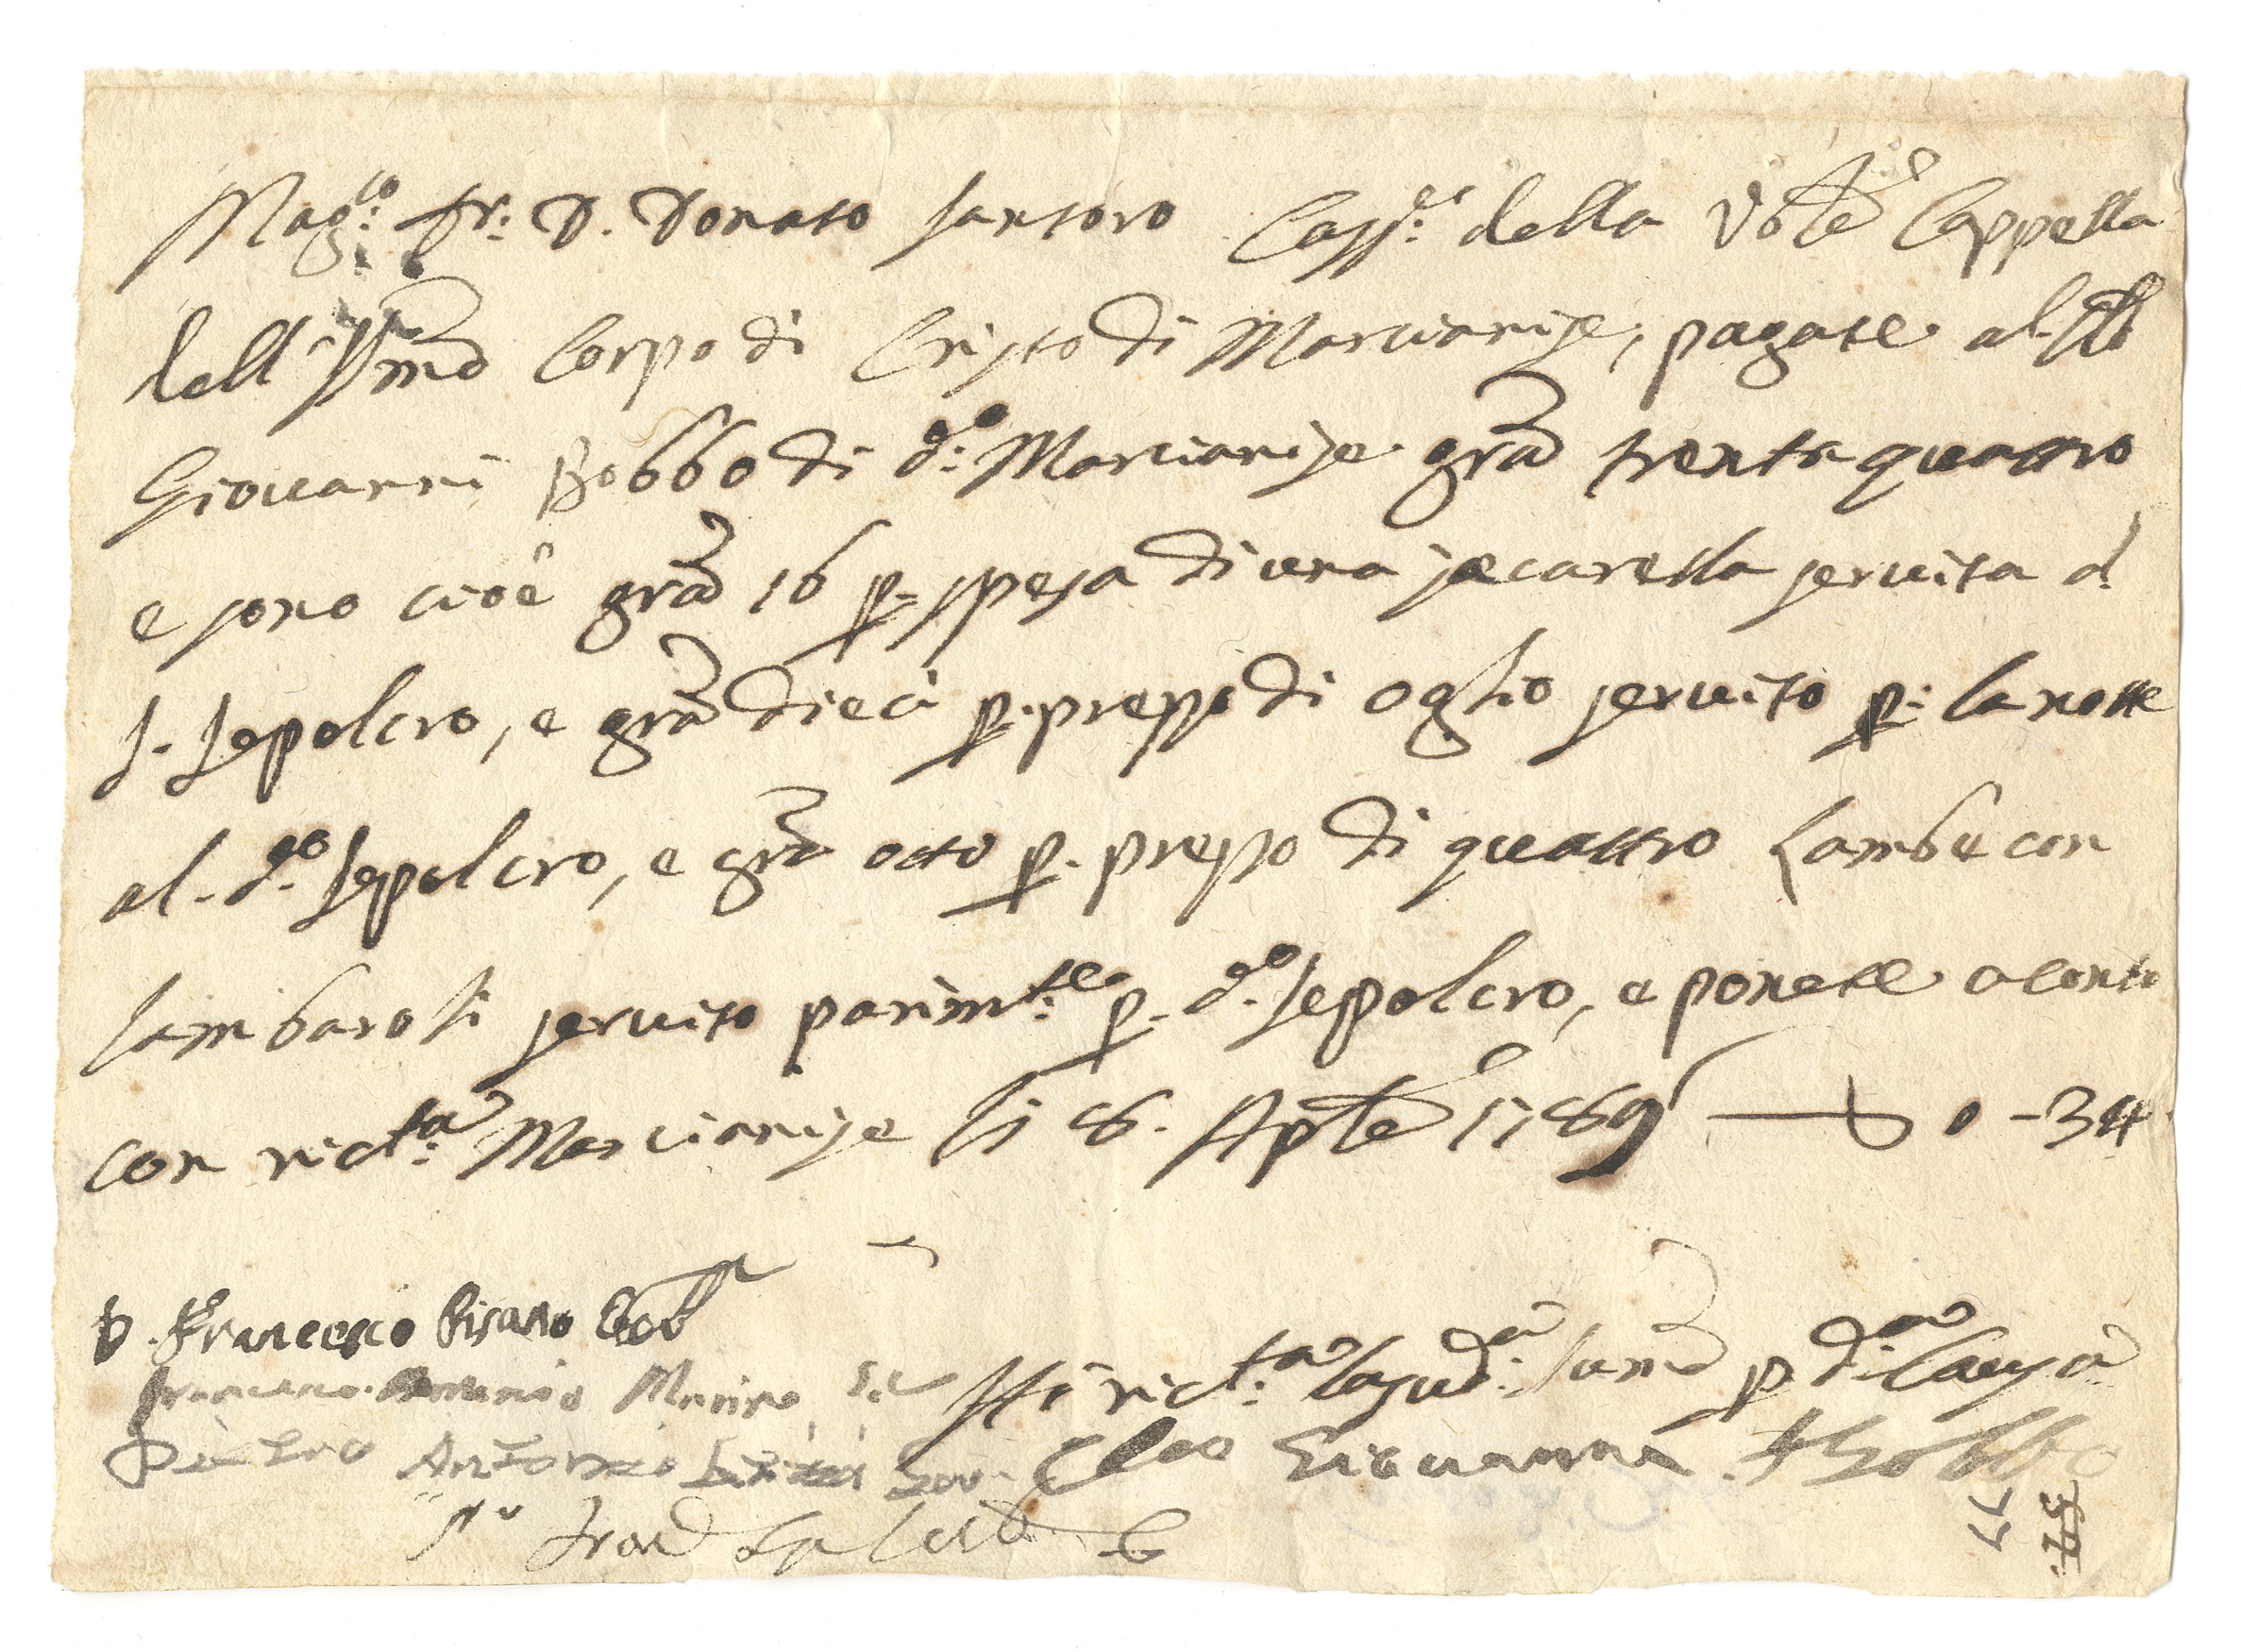 Mag:co Sr: D. Donato Santoro Cass:re della Vble Cappella
dell SSmo Corpo di Cristo di Marcianise, pagate al
Giovanni Bobbo di d:o Marcianise grā trentaquattro
e sono cioè grā 16 p. spesa di una secarella servita al
S. Sepolcro, e grā dieci p. prezzo di oglio servito p: la notte
al d:o Sepolcro, e grā otto p. prezzo di quattro Lambe con
lambaroli servito parim:te p. d:o Sepolcro, e ponete a conto
con ric:ta Marcianise li 8. Aple 1789 0-34
D. Francesco Pisano
Francesco Antonio Marino
Pietro Antonio
ric:ta p d:a Causa
Giovanna Bobbo
37.